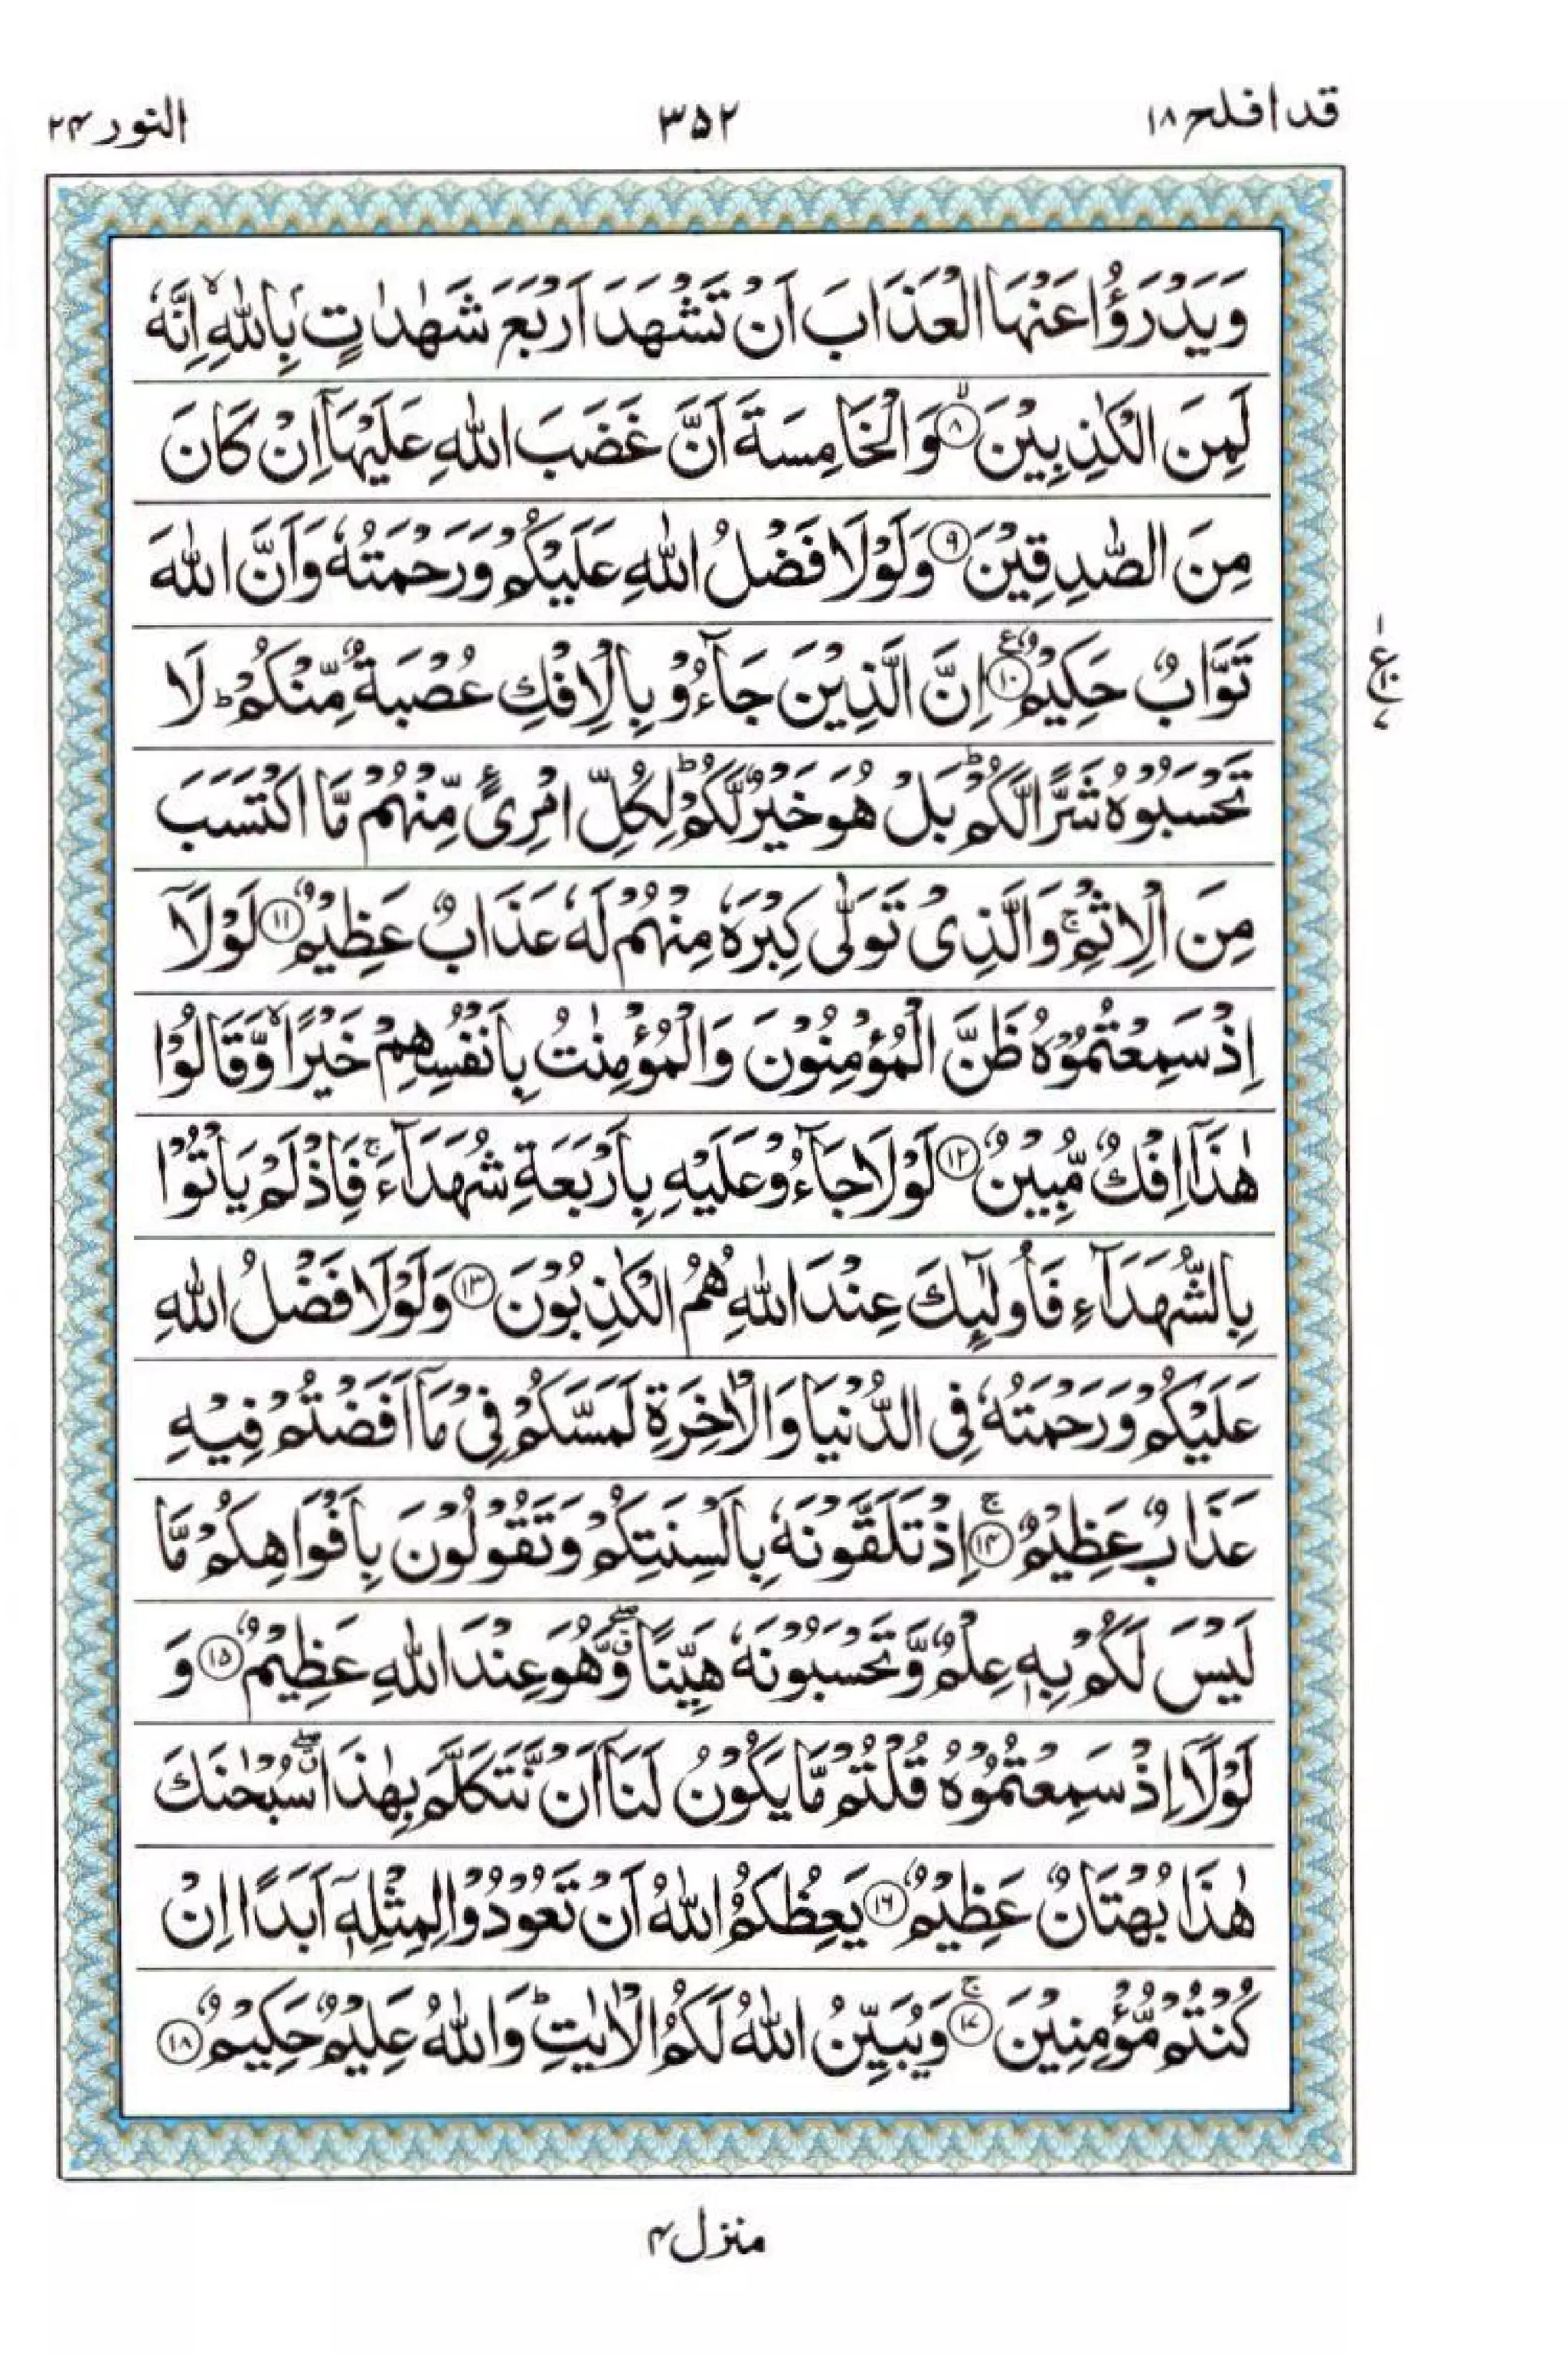 قد افلح ۱۸
۳۵۲
النور ۲۴
وَيَدْرَؤُا عَنْهَا الْعَذَابَ اَنْ تَشْهَدَ اَرْبَعَ شَهٰدٰتٍۭ بِاللّٰهِ ۙ اِنَّهٗ
لَمِنَ الْكٰذِبِيْنَ ۙ﴿۸﴾ وَالْخَامِسَةَ اَنَّ غَضَبَ اللّٰهِ عَلَيْهَاۤ اِنْ كَانَ
مِنَ الصّٰدِقِيْنَ ﴿۹﴾ وَلَوْلَا فَضْلُ اللّٰهِ عَلَيْكُمْ وَرَحْمَتُهٗ وَاَنَّ اللّٰهَ
تَوَّابٌ حَكِيْمٌ ﴿۱۰﴾ ع اِنَّ الَّذِيْنَ جَآءُوْ بِالْاِفْكِ عُصْبَةٌ مِّنْكُمْ ؕ لَا
تَحْسَبُوْهُ شَرًّا لَّكُمْ ؕ بَلْ هُوَ خَيْرٌ لَّكُمْ ؕ لِكُلِّ امْرِئٍ مِّنْهُمْ مَّا اكْتَسَبَ
مِنَ الْاِثْمِ ۚ وَالَّذِىْ تَوَلّٰى كِبْرَهٗ مِنْهُمْ لَهٗ عَذَابٌ عَظِيْمٌ ﴿۱۱﴾ لَوْلَاۤ
اِذْ سَمِعْتُمُوْهُ ظَنَّ الْمُؤْمِنُوْنَ وَالْمُؤْمِنٰتُ بِاَنْفُسِهِمْ خَيْرًا ۙ وَّقَالُوْا
هٰذَاۤ اِفْكٌ مُّبِيْنٌ ﴿۱۲﴾ لَوْلَا جَآءُوْ عَلَيْهِ بِاَرْبَعَةِ شُهَدَآءَ ۚ فَاِذْ لَمْ يَاْتُوْا
بِالشُّهَدَآءِ فَاُولٰٓئِكَ عِنْدَ اللّٰهِ هُمُ الْكٰذِبُوْنَ ﴿۱۳﴾ وَلَوْلَا فَضْلُ اللّٰهِ
عَلَيْكُمْ وَرَحْمَتُهٗ فِى الدُّنْيَا وَالْاٰخِرَةِ لَمَسَّكُمْ فِىْ مَاۤ اَفَضْتُمْ فِيْهِ
عَذَابٌ عَظِيْمٌ ۚ﴿۱۴﴾ اِذْ تَلَقَّوْنَهٗ بِاَلْسِنَتِكُمْ وَتَقُوْلُوْنَ بِاَفْوَاهِكُمْ مَّا
لَيْسَ لَكُمْ بِهٖ عِلْمٌ وَّتَحْسَبُوْنَهٗ هَيِّنًا ۖ وَّهُوَ عِنْدَ اللّٰهِ عَظِيْمٌ ﴿۱۵﴾ وَ
لَوْلَاۤ اِذْ سَمِعْتُمُوْهُ قُلْتُمْ مَّا يَكُوْنُ لَنَاۤ اَنْ نَّتَكَلَّمَ بِهٰذَا ۖ سُبْحٰنَكَ
هٰذَا بُهْتَانٌ عَظِيْمٌ ﴿۱۶﴾ يَعِظُكُمُ اللّٰهُ اَنْ تَعُوْدُوْا لِمِثْلِهٖۤ اَبَدًا اِنْ
كُنْتُمْ مُّؤْمِنِيْنَ ۚ﴿۱۷﴾ وَيُبَيِّنُ اللّٰهُ لَكُمُ الْاٰيٰتِ ؕ وَاللّٰهُ عَلِيْمٌ حَكِيْمٌ ﴿۱۸﴾
۱
ع ۱۰
۷
منزل ۴